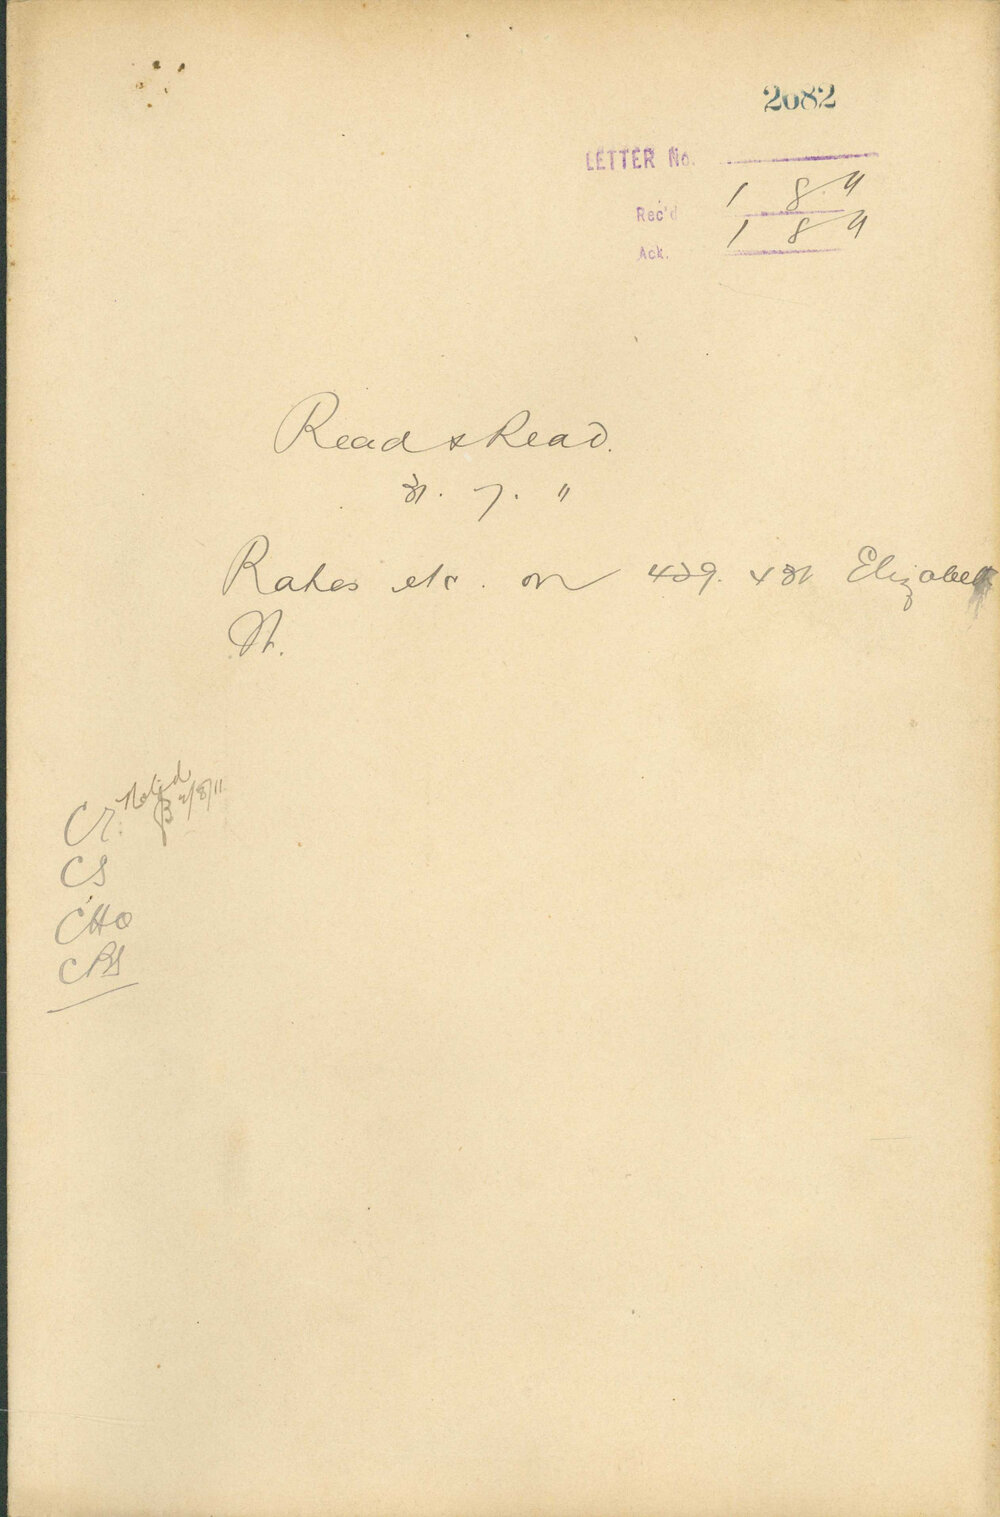 2082
LETTER No.
Rec'd 1 8 11
Ack. 1 8 11
Read & Read.
31. 7. 11
Rates etc. on 429. & 31 Elizabeth
St.
Noted
2/8/11
CR.
CS
CHO